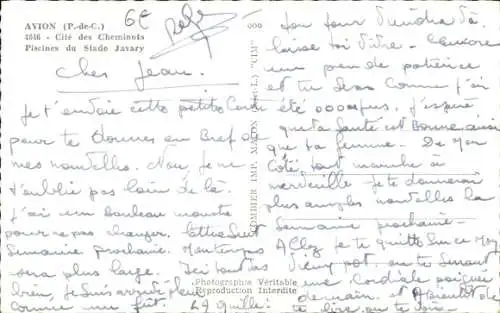 AVION (P.-de-C.)
4646 - Cité des Cheminots
Piscines du Stade Javary
6€
Cher Jean.
Je t'envoie cette petite Carte
pour te donner en Bref de
mes nouvelles. Non, je ne
t'oublie pas loin de là.
J'ai un bouleau monstre
pour ne pas changer. Lettre Suit
Semaine prochaine. Maintenant
sera plus large. Ici tout va
bien, Je suis arrivé plein
comme un fût. 29 quille!
COMBIER IMP. MACON "CIM"
Photographie Véritable
Reproduction Interdite
ton tour viendra là.
laisse toi vivre. Encore
un peu de patience
et tu seras comme j'ai
été J'espère
que ta Santé est Bonne ainsi
que ta femme. De Mon
Côté tout marche à
merveille. Je te donnerai
plus amples nouvelles la
Semaine prochaine.
Allez je te quitte sur ce Mon
Vieux pot, en te serrant
une Cordiale poignée
de main, et
te lire, ou te voir.